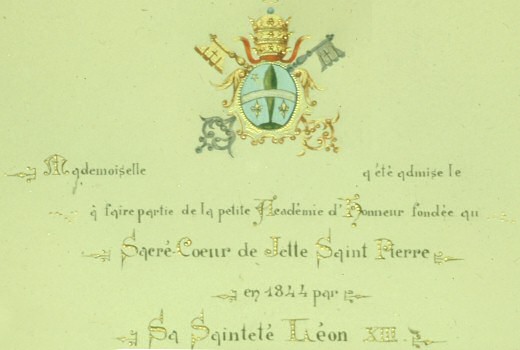 Mademoiselle a été admise le
à faire partie de la petite Académie d'Honneur fondée au
Sacré-Coeur de Jette Saint Pierre
en 1844 par
Sa Sainteté Léon XIII.